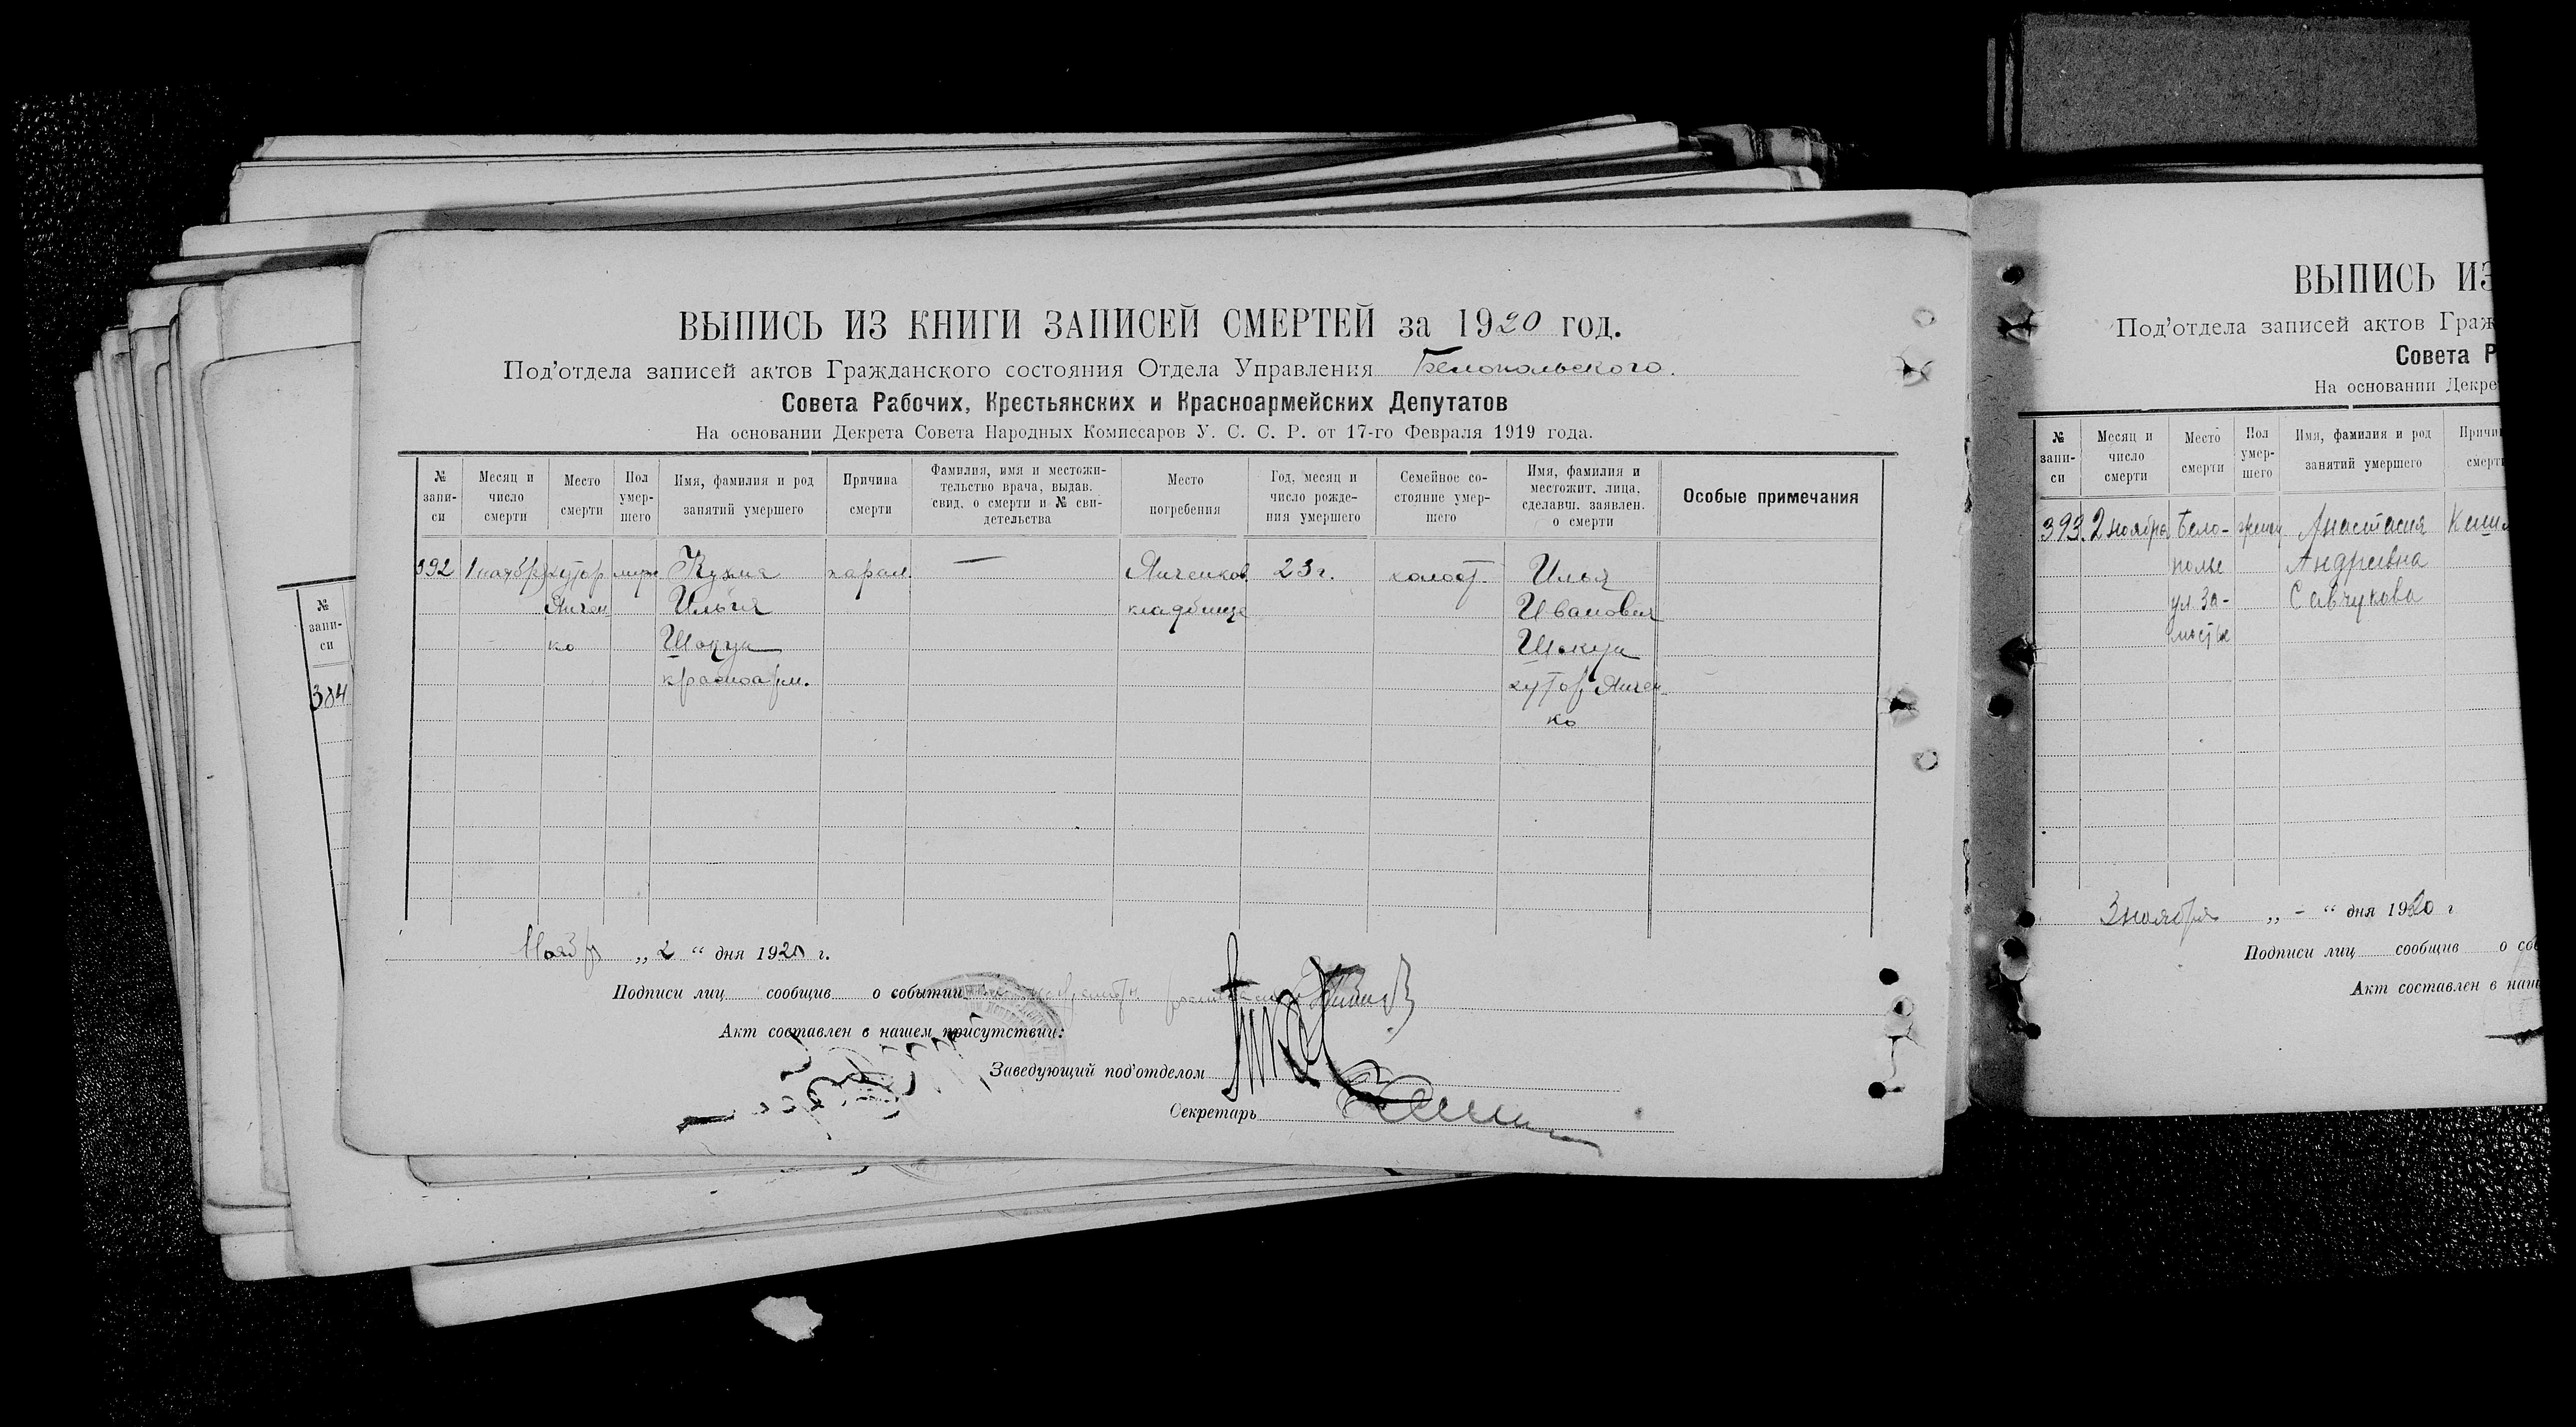 ВЫПИСЬ ИЗ КНИГИ ЗАПИСЕЙ СМЕРТЕЙ за 1920 год.
Под'отдела записей актов Гражданского состояния Отдела Управления Белопольского.
Совета Рабочих, Крестьянских и Красноармейских Депутатов
На основании Декрета Совета Народных Комиссаров У. С. С. Р. от 17-го Февраля 1919 года.
№ запи-си
Месяц и число смерти
Место смерти
Пол умер-шего
Имя, фамилия и род занятий умершего
Причина смерти
Фамилия, имя и местожи-тельство врача, выдав. свид. о смерти и № сви-детельства
Место погребения
Год, месяц и число рожде-ния умершего
Семейное со-стояние умер-шего
Имя, фамилия и местожит. лица, сделавш. заявлен. о смерти
Особые примечания
392 1 ноябр хутор муж Кузма парал. — Янченков 23 г. холост. Илья
Янчен- Ильич кладбище Иванович
ко Шокун Шокун
красноарм. хутор Янчен-
ко
Ноябр „ 2 “ дня 1920 г.
Подписи лиц сообщив о событии
Акт составлен в нашем присутствии:
Заведующий под'отделом
Секретарь
№ запи-си
384
ВЫПИСЬ ИЗ
Под'отдела записей актов Граж
Совета Р
На основании Декре
№ запи-си
Месяц и число смерти
Место смерти
Пол умер-шего
Имя, фамилия и род занятий умершего
Причин
смерти
393. 2 ноября Бело- женц Анастасия
полье Андреевна
ул. За- Савчукова
мостье
3 ноября „ - “ дня 1920 г
Подписи лиц сообщив о соб
Акт составлен в наше